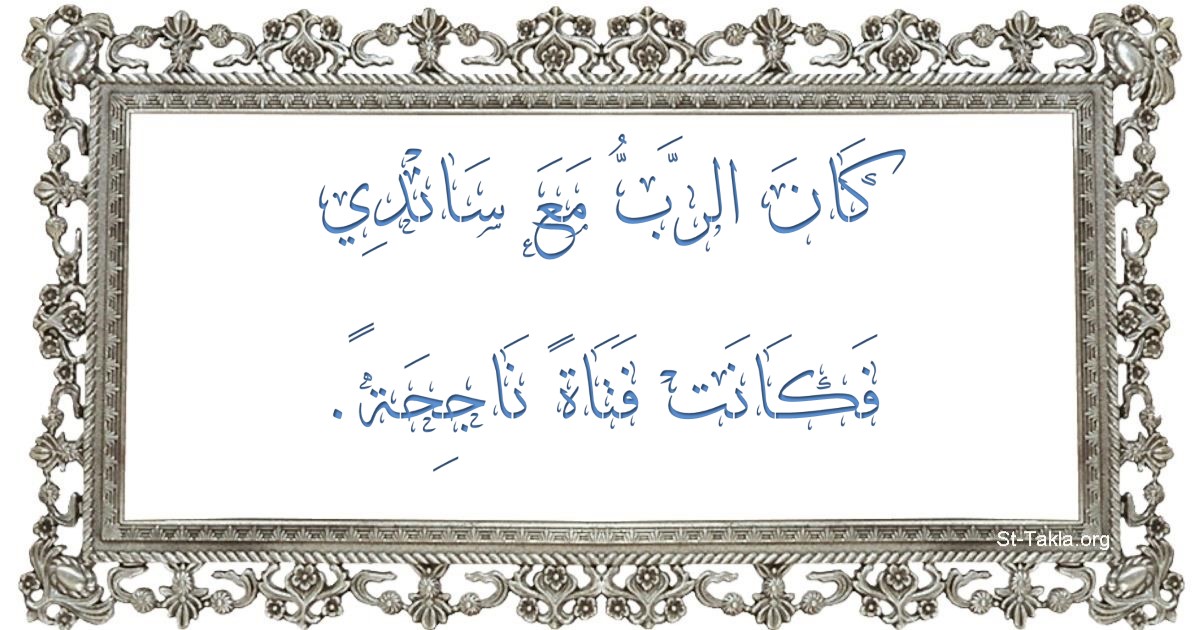 كَانَ الرَّبُّ مَعَ سَانْدِي
فَكَانَتْ فَتَاةً نَاجِحَةً.
St-Takla.org